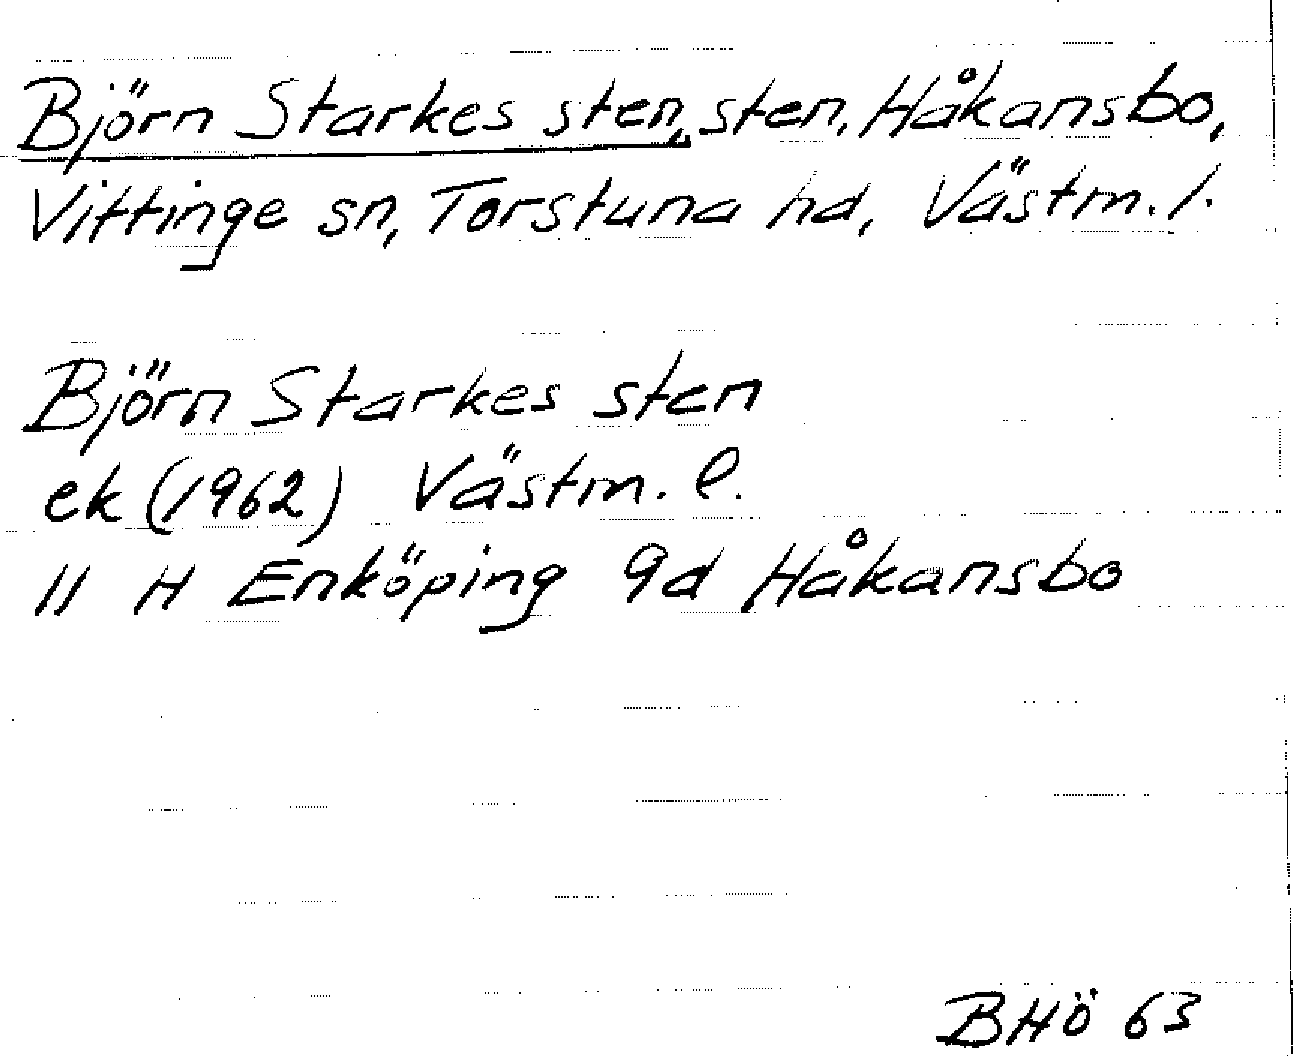 Björn Starkes sten, sten, Håkansbo,
Vittinge sn, Torstuna hd, Västm. l.
Björn Starkes sten
ek (1962) Västm. l.
11 H Enköping 9d Håkansbo
BHÖ 63